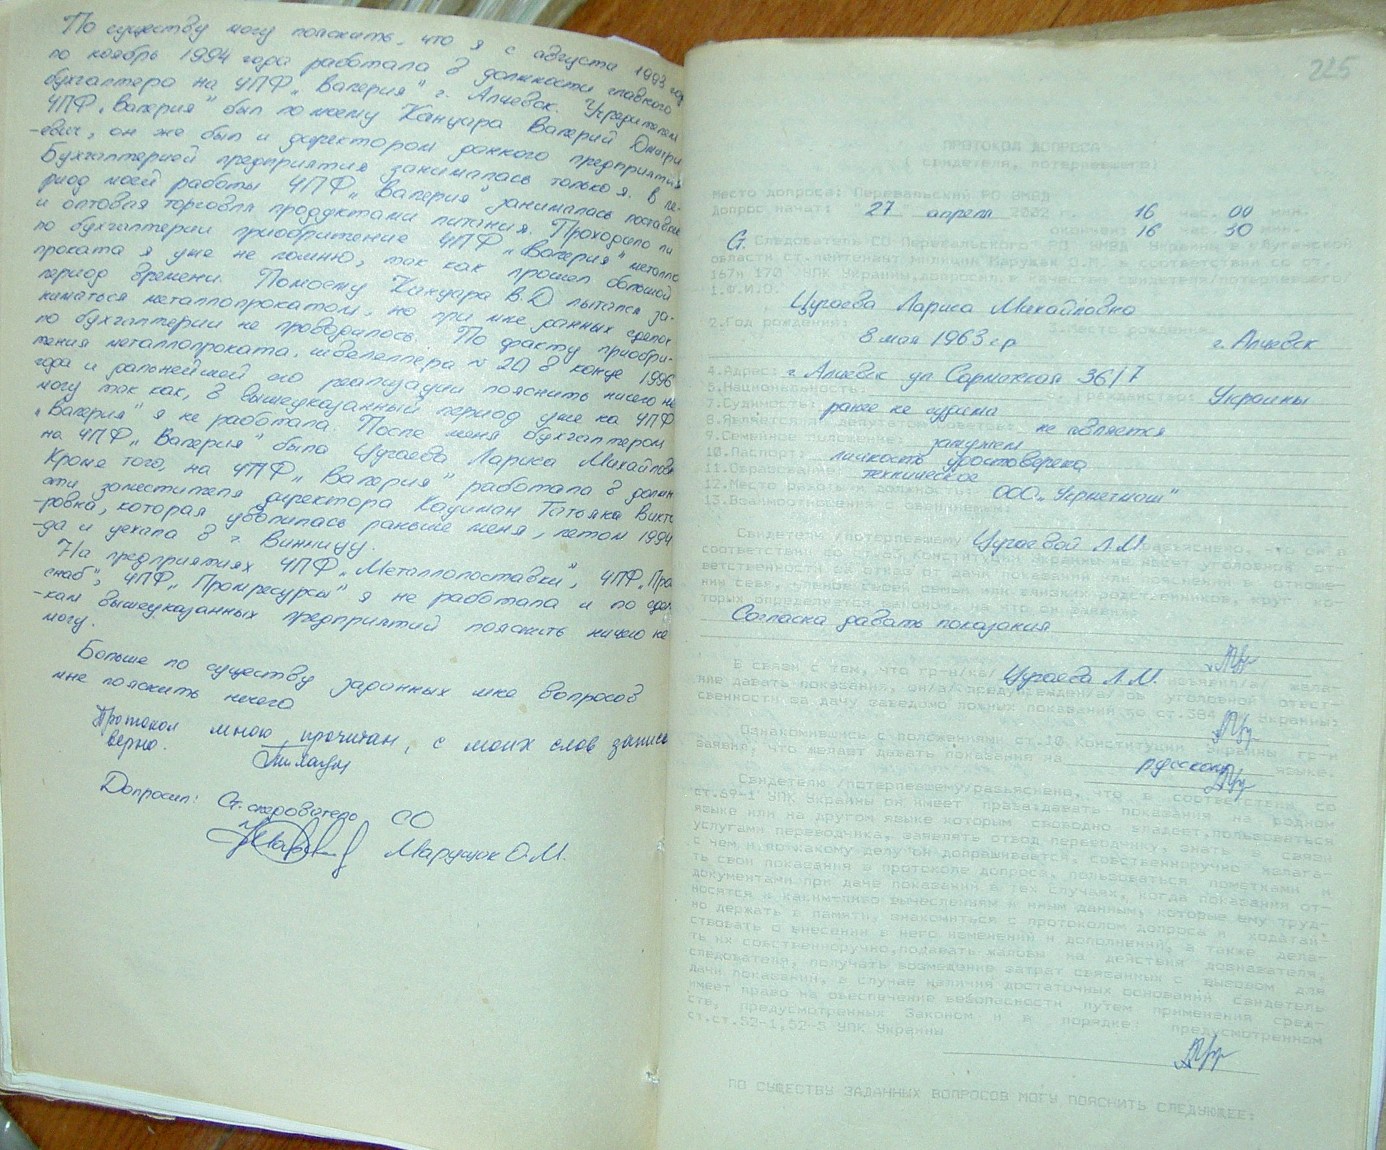 По существу могу пояснить, что я с августа 1993 год
по ноябрь 1994 года работала в должности главного
бухгалтера на ЧПФ „Валерия" г. Алчевск. Учредителем
ЧПФ „Валерия" был по моему Канцара Валерий Дмитри
-евич, он же был и директором данного предприятия
Бухгалтерией предприятия занималась только я. В пе-
риод моей работы ЧПФ „Валерия" занималась поставкой
и оптовая торговля продуктами питания. Проходило ли
по бухгалтерии приобритение ЧПФ „Валерия" металло
проката я уже не помню, так как прошел большой
период времени. Помоему Канцара В.Д пытался за-
ниматься металлопрокатом, но при мне данных сделок
по бухгалтерии не проводилось. По факту приобри-
тения металлопроката, швелеллера № 20 в конце 1996
года и дальнейшей его реализации пояснить ничего не
могу так как, в вышеуказанный период уже на ЧПФ
„Валерия" я не работала. После меня бухгалтером
на ЧПФ „Валерия" была Цугаева Лариса Михайловн
Кроме того, на ЧПФ „Валерия" работала в должн
ости заместителя директора Татьяна Викто
-ровна, которая уволилась раньше меня, летом 1994
-да и уехала в г. Винницу.
На предприятиях ЧПФ „Металлопоставки", ЧПФ „Про
снаб", ЧПФ „Промресурсы" я не работала и по сдел
-кам вышеуказанных предприятий пояснить ничего не
могу.
Больше по существу заданных мне вопросов
мне пояснить нечего
Протокол мною прочитан, с моих слов записан
верно.
Допросил: Ст. следователь СО
Марущак О.М.
225
ПРОТОКОЛ ДОПРОСА
( свидетеля, потерпевшего)
Место допроса: Перевальский РО УМВД
Допрос начат: 27 апреля 2002 г. 16 час. 00 мин.
окончен: 16 час. 30 мин.
Ст. Следователь СО Перевальского РО УМВД Украины в Луганской
области ст.лейтенант милиции Марущак О.М. в соответствии со ст.
167и 170 УПК Украины,допросил в качестве свидетеля/потерпевшего/
1.Ф.И.О.
Цугаева Лариса Михайловна
2.Год рождения: 3.Место рождения.
8 мая 1963 г.р г. Алчевск
4.Адрес: г. Алчевск ул 36/7
5.Национальность: 6. Гражданство: Украины
7.Судимость: ранее не судима
8.Является ли депутатом советов: не является
9.Семейное положение: замужем
10.Паспорт: личность удостоверена
11.Образование: техническое
12.Место работы, должность: ООО „Укрметмаш"
13.Взаимоотношения с обвиняемым:
Свидетелю /потерпевшему/ Цугаевой Л.М. разъяснено, что он в
соответствии со ст.63 Конституции Украины не несет уголовной от-
ветственности за отказ от дачи показаний или пояснений в отноше-
нии себя, членов своей семьи или близких родственников, круг ко-
торых определяется законом, на что он заявил:
Согласна давать показания
В связи с тем, что гр-н/ка/ Цугаева Л.М. изъявил/а/ жела-
ние давать показания, он/а/ предупрежден/а/ об уголовной ответст-
венности за дачу заведомо ложных показаний по ст.384 УК Украины:
Ознакомившись с положениями ст.10 Конституции Украины гр-н
заявил, что желает давать показания на русском языке.
Свидетелю /потерпевшему/разъяснено, что в соответствии со
ст.69-1 УПК Украины он имеет право:давать показания на родном
языке или на другом языке которым свободно владеет,пользоваться
услугами переводчика, заявлять отвод переводчику, знать в связи
с чем и по какому делу он допрашивается, собственноручно излага-
ть свои показания в протоколе допроса, пользоваться пометками и
документами при даче показаний в тех случаях, когда показания от-
носятся к каким-либо вычислениям и иным данным, которые ему труд-
но держать в памяти, знакомиться с протоколом допроса и ходатай-
ствовать о внесении в него изменений и дополнений, а также дела-
ть их собственноручно,подавать жалобы на действия дознавателя,
следователя, получать возмещение затрат связанных с вызовом для
дачи показаний, в случае наличия достаточных оснований свидетель
имеет право на обеспечение безопасности путем применения сред-
ств, предусмотренных Законом и в порядке, предусмотренном
ст.ст.52-1,52-5 УПК Украины
ПО СУЩЕСТВУ ЗАДАННЫХ ВОПРОСОВ МОГУ ПОЯСНИТЬ СЛЕДУЮЩЕЕ: